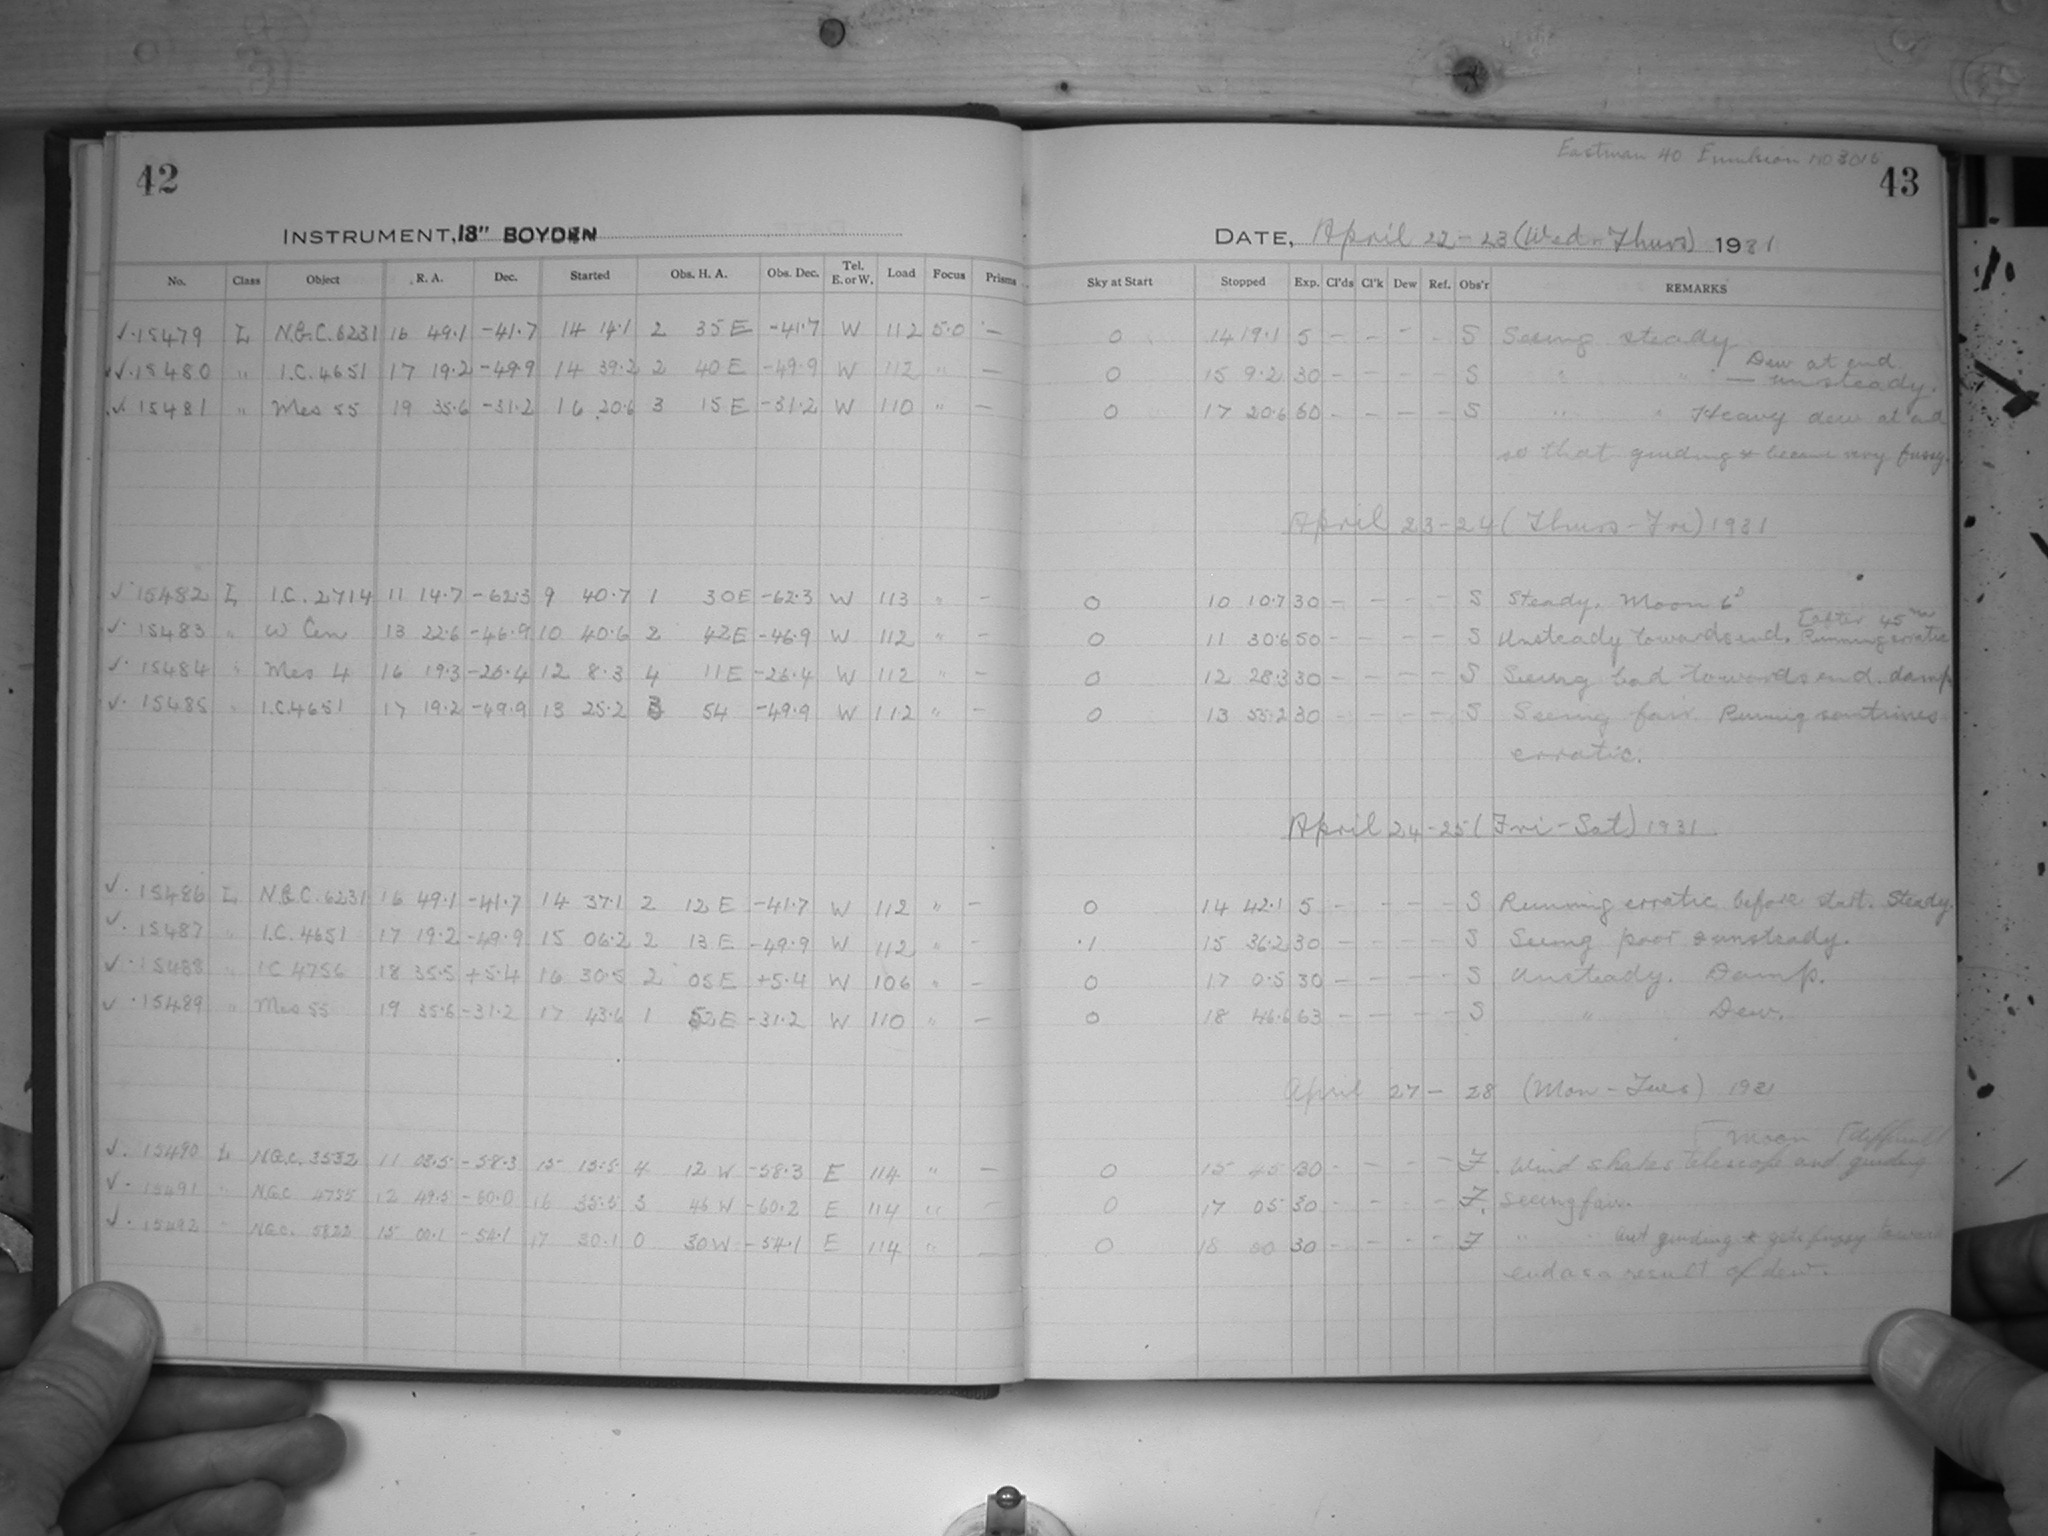 42
INSTRUMENT, 13" BOYDEN
No. Class Object R. A. Dec. Started Obs. H. A. Obs. Dec. Tel. E. or W. Load Focus Prisms
✓·15479 L N.G.C.6231 16 49.1 -41.7 14 14.1 2 35 E -41.7 W 112 5.0 —
✓·15480 " I.C.4651 17 19.2 -49.9 14 39.2 2 40 E -49.9 W 112 " —
✓·15481 " Mes 55 19 35.6 -31.2 16 20.6 3 15 E -31.2 W 110 " —
✓·15482 L I.C. 2714 11 14.7 -62.3 9 40.7 1 30 E -62.3 W 113 " —
✓·15483 " W Cen 13 22.6 -46.9 10 40.6 2 42 E -46.9 W 112 " —
✓·15484 " Mes 4 16 19.3 -26.4 12 8.3 4 11 E -26.4 W 112 " —
✓·15485 " I.C.4651 17 19.2 -49.9 13 25.2 3 54 -49.9 W 112 " —
✓·15486 L N.G.C. 6231 16 49.1 -41.7 14 37.1 2 12 E -41.7 W 112 " —
✓·15487 " I.C. 4651 17 19.2 -49.9 15 06.2 2 13 E -49.9 W 112 " —
✓·15488 " IC 4756 18 35.5 +5.4 16 30.5 2 05 E +5.4 W 106 " —
✓·15489 " Mes 55 19 35.6 -31.2 17 43.6 1 52 E -31.2 W 110 " —
✓·15490 L N.G.C. 3532 11 03.5 -58.3 15 15.5 4 12 W -58.3 E 114 " —
✓·15491 " NGC 4755 12 49.5 -60.0 16 35.5 3 46 W -60.2 E 114 " —
✓·15492 " NGC. 5822 15 00.1 -54.1 17 30.1 0 30 W -54.1 E 114 " —
Eastman 40 Emulsion no
43
DATE, April 22-23 (Wed-Thurs) 1931
Sky at Start Stopped Exp. Cl'ds Cl'k Dew Ref. Obs'r REMARKS
0 14 19.1 5 — — — — S Seeing steady
0 15 9.2 30 — — — — S " " — Dew at end unsteady.
0 17 20.6 60 — — — — S " " Heavy dew at end
so that guiding * became very fussy.
April 23-24 (Thurs-Fri) 1931
0 10 10.7 30 — — — — S Steady. Moon 6
0 11 30.6 50 — — — — S Unsteady towards end. Running erratic [after 45
0 12 28.3 30 — — — — S Seeing bad towards end. damp
0 13 55.2 30 — — — — S Seeing fair Running sometimes
erratic.
April 24-25 (Fri-Sat) 1931
0 14 42.1 5 — — — — S Running erratic before start. Steady.
.1 15 36.2 30 — — — — S Seeing poor & unsteady.
0 17 0.5 30 — — — — S Unsteady. Damp.
0 18 46.6 63 — — — — S " Dew.
April 27- 28 (Mon-Tues) 1931
[Moon [difficult
0 15 45 30 — — — — F. Wind shakes telescope and guiding
0 17 05 30 — — — — F. Seeing fair.
0 18 00 30 — — — — F " " but guiding * gets fussy toward
end as a result of dew.